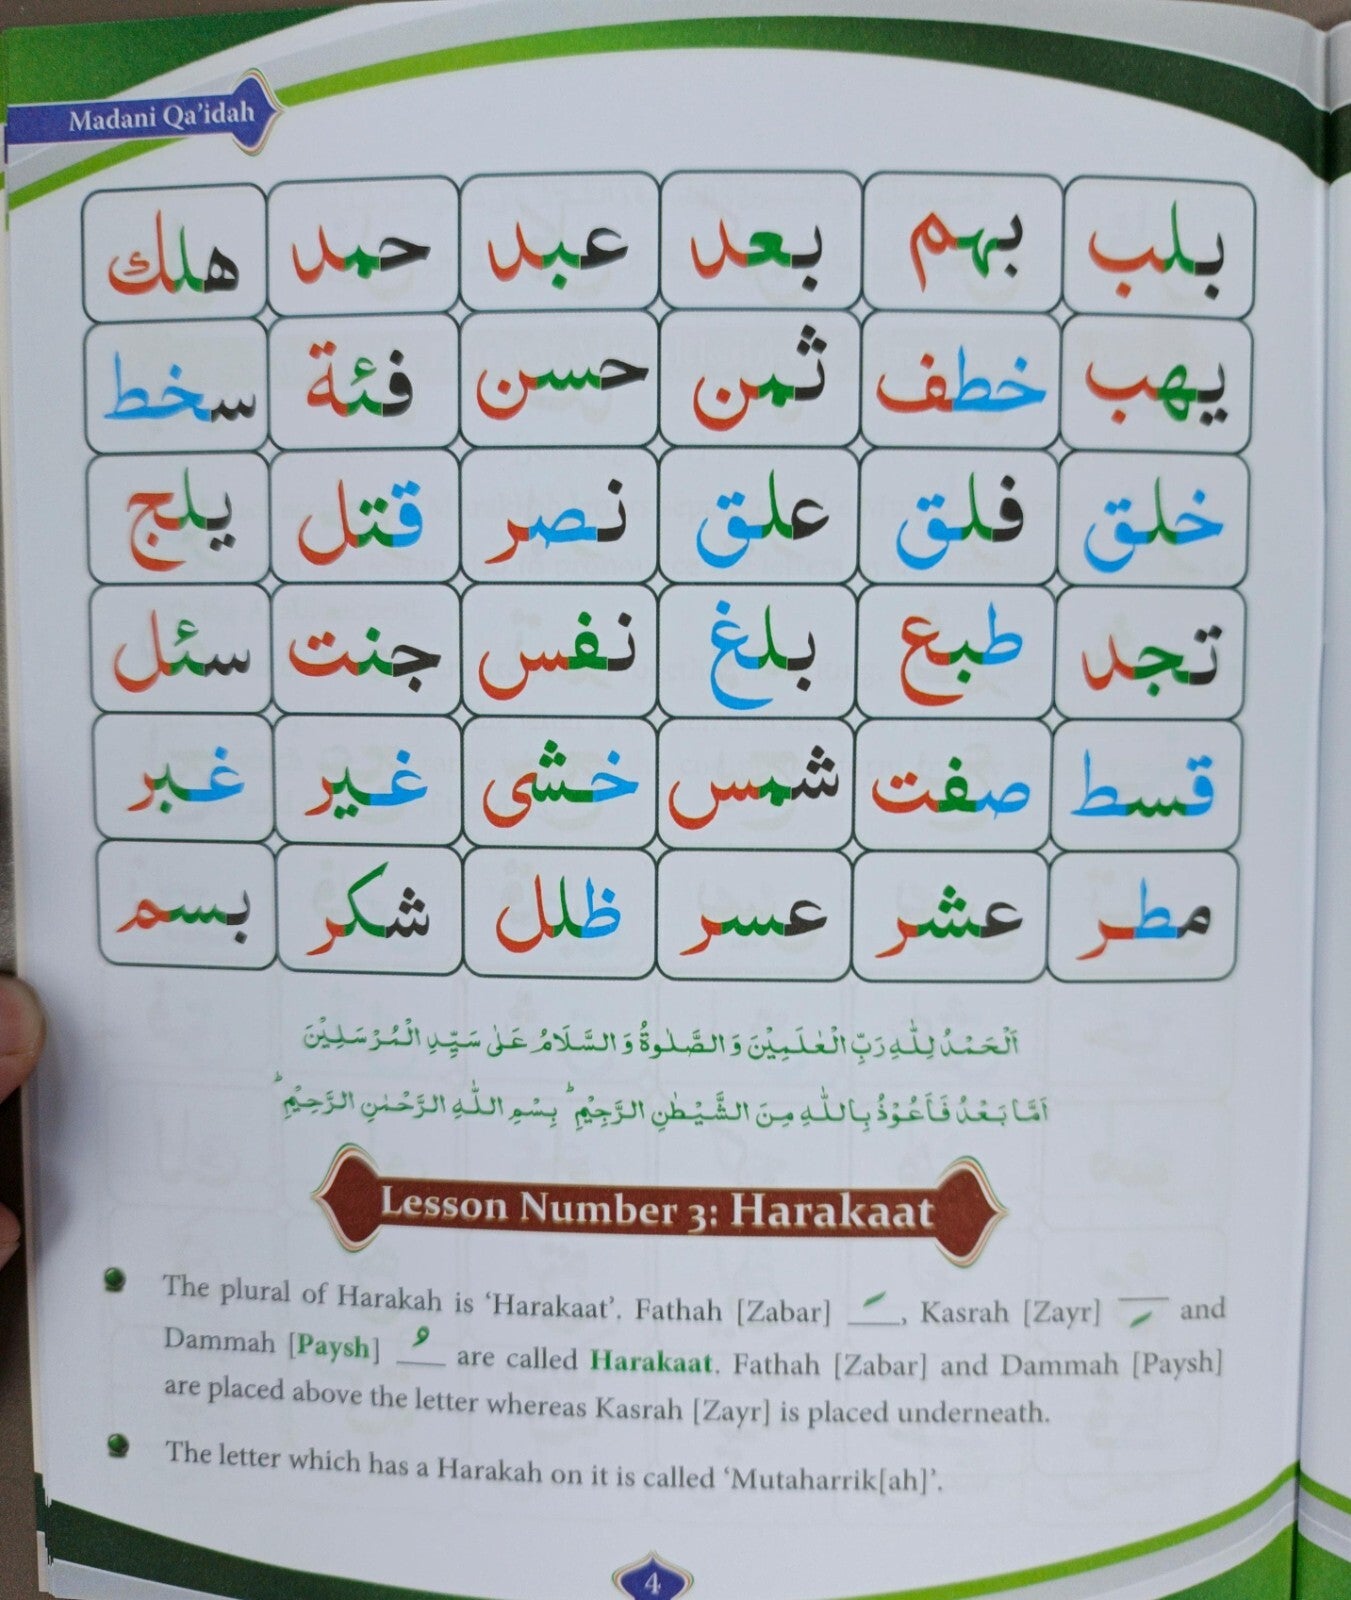 Madani Qa'idah
بلب بهم بعد عبد حمد هلك
يهب خطف ثمن حسن فئة سخط
خلق فلق علق نصر قتل يلج
تجد طبع بلغ نفس جنت سئل
قسط صفت شمس خشى غير غبر
مطر عشر عسر ظلل شكر بسم
اَلْحَمْدُ لِلّٰهِ رَبِّ الْعٰلَمِيْنَ وَالصَّلٰوةُ وَالسَّلَامُ عَلٰى سَيِّدِ الْمُرْسَلِيْنَ
اَمَّا بَعْدُ فَاَعُوْذُ بِاللّٰهِ مِنَ الشَّيْطٰنِ الرَّجِيْمِ ؕ بِسْمِ اللّٰهِ الرَّحْمٰنِ الرَّحِيْمِ ؕ
Lesson Number 3: Harakaat
The plural of Harakah is ‘Harakaat’. Fathah [Zabar] __َ__, Kasrah [Zayr] __ِ__ and
Dammah [Paysh] __ُ__ are called Harakaat. Fathah [Zabar] and Dammah [Paysh]
are placed above the letter whereas Kasrah [Zayr] is placed underneath.
The letter which has a Harakah on it is called ‘Mutaharrik[ah]’.
4